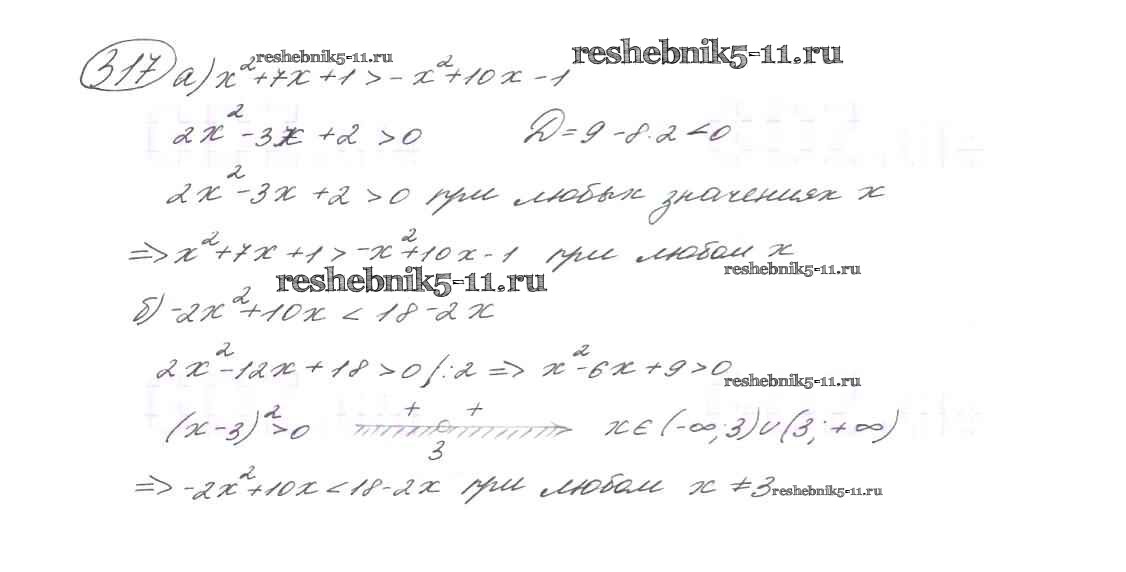 317 а) x² + 7x + 1 > - x² + 10x - 1
reshebnik5-11.ru
reshebnik5-11.ru
2x² - 3x + 2 > 0 D = 9 - 8·2 < 0
2x² - 3x + 2 > 0 при любых значениях x
=> x² + 7x + 1 > -x² + 10x - 1 при любом x
reshebnik5-11.ru
reshebnik5-11.ru
б) -2x² + 10x < 18 - 2x
2x² - 12x + 18 > 0 /:2 => x² - 6x + 9 > 0
reshebnik5-11.ru
(x - 3)² > 0 + + 3 x ∈ (-∞; 3) ∪ (3; +∞)
=> -2x² + 10x < 18 - 2x при любом x ≠ 3
reshebnik5-11.ru